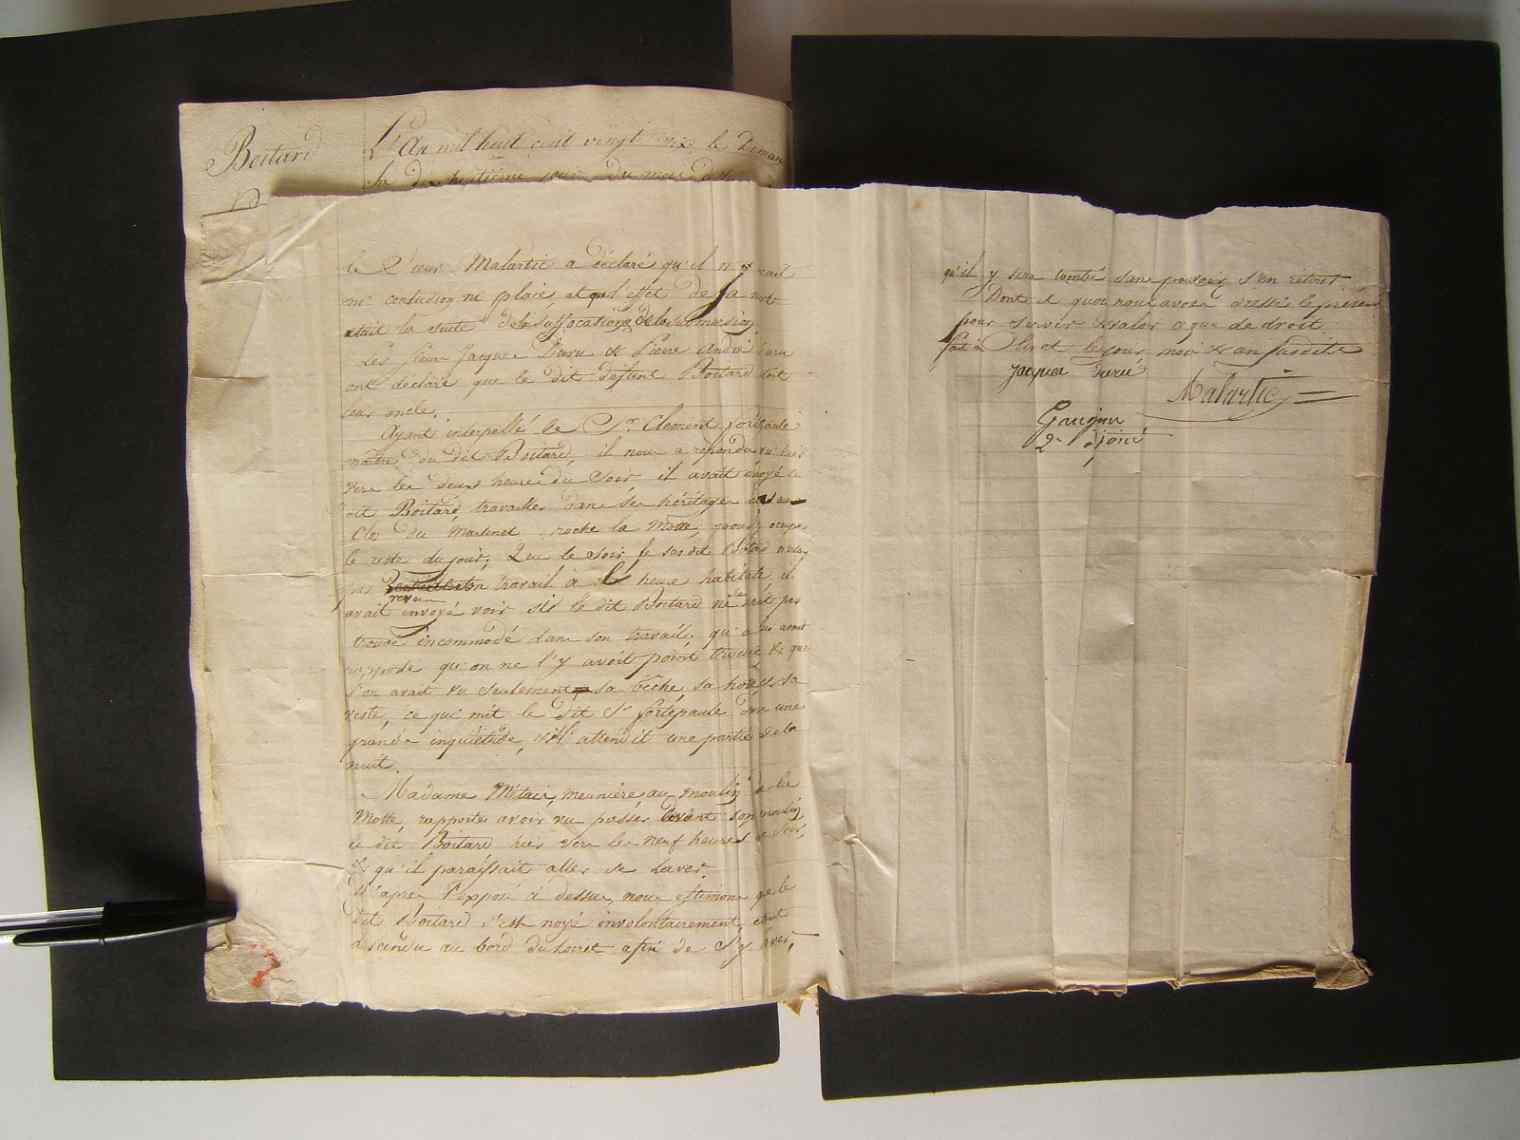 Boitard
L'An mil huit cent vingt dix le Diman
che dix huitième jour du mois
le Sieur Malartic a déclaré qu'il n'y avait
ni contusion ni plaies et que l'effet de sa mort
était la suite de la suffocation de la submersion.
Les Sieurs Jacques Duru et Pierre André Duru
ont déclaré que le dit défunt Boitard était
leur oncle.
Ayant interpellé le Sr Clément fortépaule
maître du dit Boitard, il nous a répondu qu'hier
vers les deux heures du Soir il avait envoyé le
dit Boitard travailler dans ses héritages
Clos du Martinet roche la Motte,
le reste du jour; Que le soir, le
travail à l'heure habituée, il
avait envoyé voir si le dit Boitard ne serait pas
trouvé incommodé dans son travail, qu'on lui avait
rapporté qu'on ne l'y avait point trouvé & que
l'on avait vu seulement sa bêche, sa houe & sa
veste, ce qui mit le dit Sr fortépaule dans une
grande inquiétude, & l'attendit une partie de la
nuit.
Madame Métais, meunière au moulin de la
Motte, rapporte avoir vu passer devant son moulin
le dit Boitard hier vers les neuf heures du Soir,
& qu'il paraissait aller se laver.
D'après l'exposé ci dessus, nous estimons que le
dit Boitard s'est noyé involontairement, étant
descendu au bord du Loiret afin de s'y laver,
qu'il y sera tombé sans pouvoir s'en retirer
Dont et quoi nous avons dressé le présent
pour servir & valoir a que de droit.
fait à Olivet les jour, mois & an susdits
Jacques Duru
Malartic
Gaugnu
2e adjoint